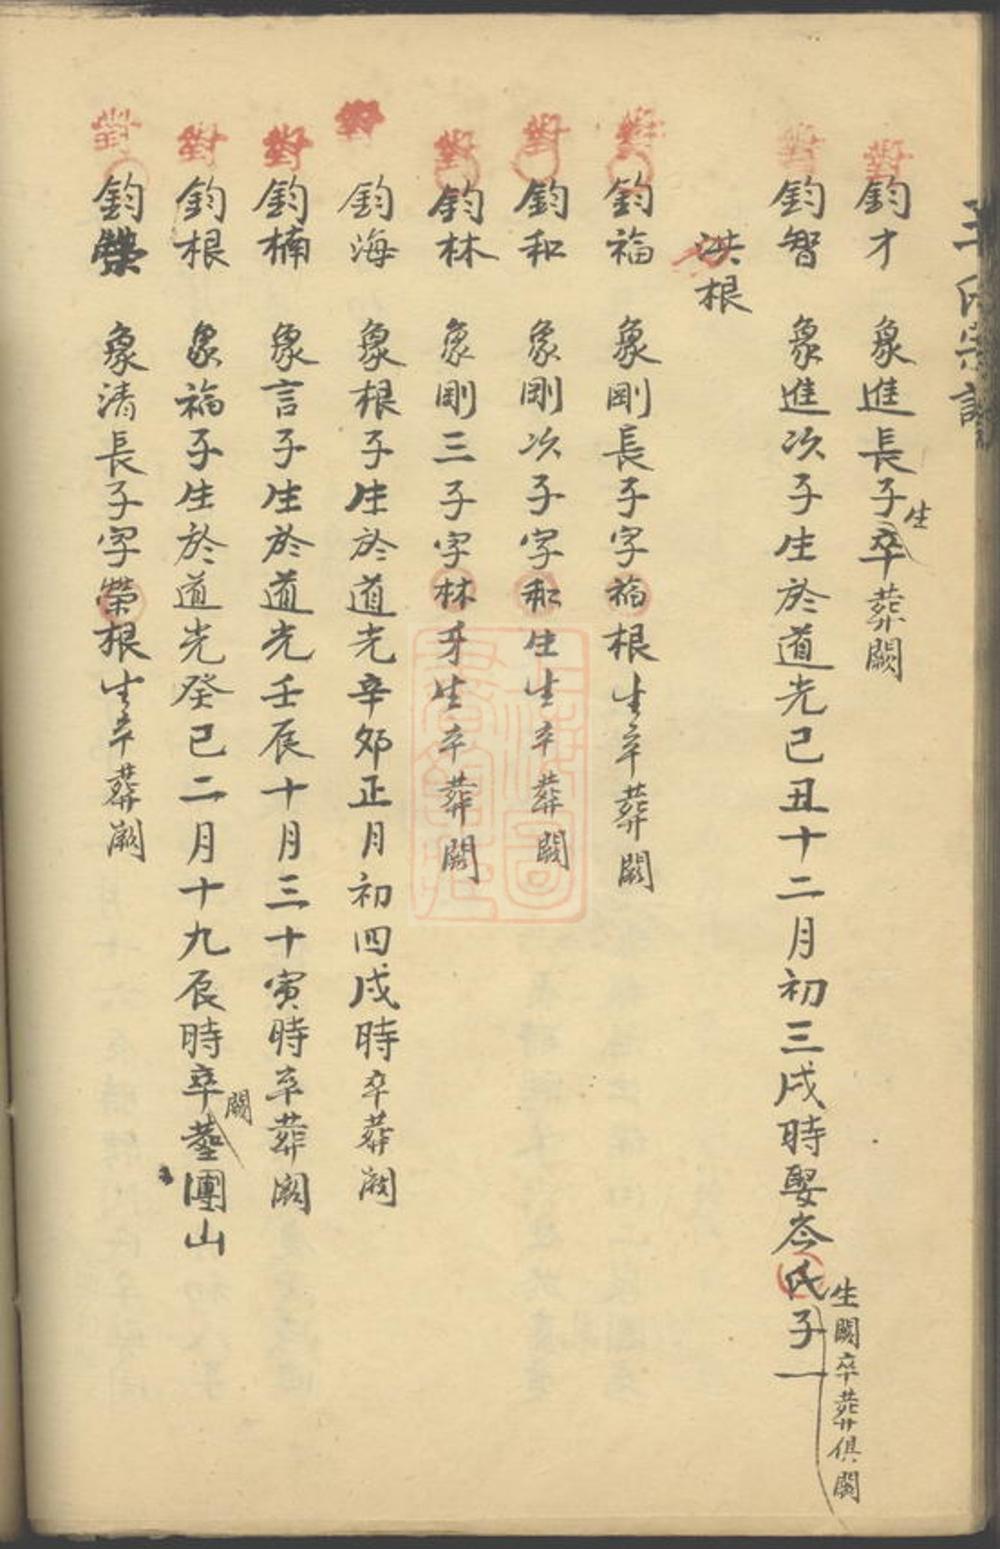 王氏宗譜
對 鈞才 象進長子生卒葬闕
對 鈞智 象進次子生於道光己丑十二月初三戌時娶岑氏生闕卒葬俱闕子一
洪根
對 鈞福 象剛長子字福根生卒葬闕
對 鈞和 象剛次子字和生生卒葬闕
對 鈞林 象剛三子字林才生卒葬闕
對 鈞海 象根子生於道光辛卯正月初四戌時卒葬闕
對 鈞楠 象言子生於道光壬辰十月三十寅時卒葬闕
對 鈞根 象福子生於道光癸巳二月十九辰時卒闕葬團山
對 鈞榮 象清長子字榮根生卒葬闕